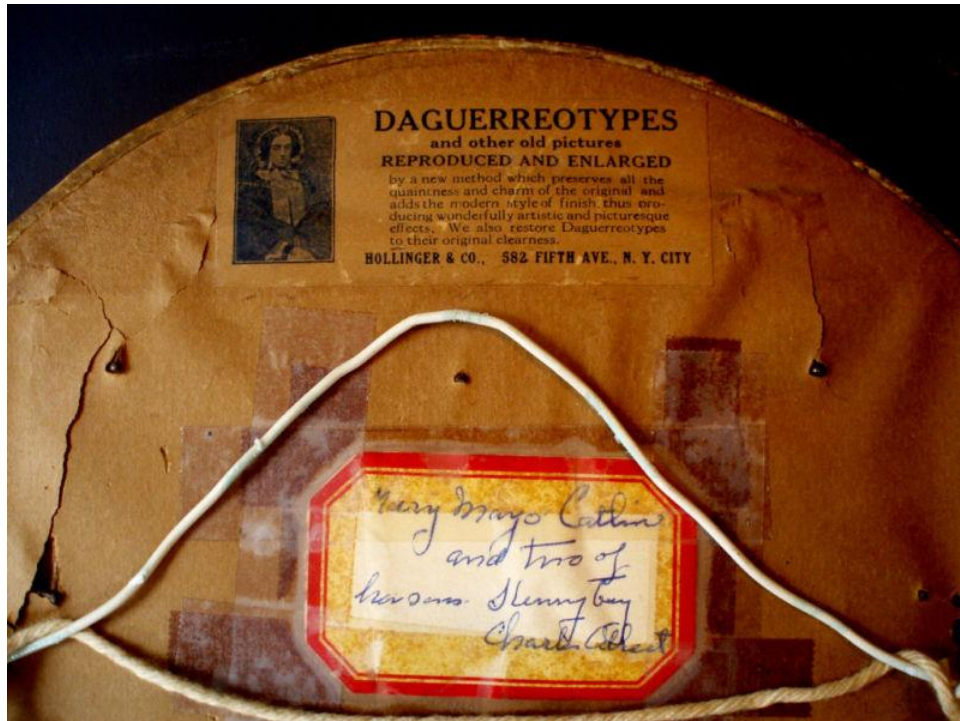 DAGUERREOTYPES
and other old pictures
REPRODUCED AND ENLARGED
by a new method which preserves all the
quaintness and charm of the original and
adds the modern style of finish, thus pro-
ducing wonderfully artistic and picturesque
effects. We also restore Daguerreotypes
to their original clearness.
HOLLINGER & CO., 582 FIFTH AVE., N. Y. CITY
Mary Mayo Catlin
and two of
her sons Henry Guy
Charles Albert